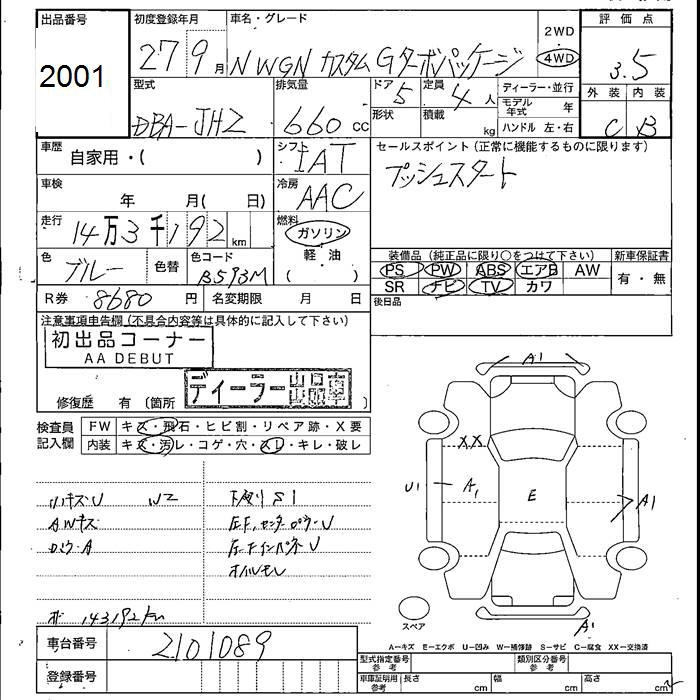 出品番号 初度登録年月 車名・グレード 2WD 4WD 評価点
2001 27 9月 NWGN カスタム Gターボパッケージ 3.5
型式 排気量 ドア 定員 ディーラー・並行 外装 内装
DBA-JH2 660cc 5 4人 モデル年式 年 C B
形状 積載 kg ハンドル 左・右
車歴 シフト セールスポイント(正常に機能するものに限ります)
自家用・( ) IAT プッシュスタート
車検 冷房
年 月( 日) AAC
走行 燃料
14万3千192km ガソリン
軽油
( )
色 ブルー 色替 色コード B593M
装備品(純正品に限り○をつけて下さい) 新車保証書
PS PW ABS エアB AW 有・無
SR ナビ TV カワ
R券 8680円 名変期限 月 日 後日品
注意事項申告欄(不具合内容等は具体的に記入して下さい)
初出品コーナー
AA DEBUT
ディーラー出品車
修復歴 有(箇所 )
検査員記入欄 FW キズ・飛石・ヒビ割・リペア跡・X要
内装 キズ・汚レ・コゲ・穴・スレ・キレ・破レ
A1
XX
U1 A1 E A1
A1
ハキズU W2 下廻りS1
AWキズ 左F,センターピラーU
左FインパネU
オイルモレ
143192km
スペア
A=キズ E=エクボ U=凹み W=補修跡 S=サビ C=腐食 XX=交換済
車台番号 2101089
登録番号
型式指定番号 参考 類別区分番号 参考
車庫証明用 参考 長さ cm 幅 cm 高さ cm